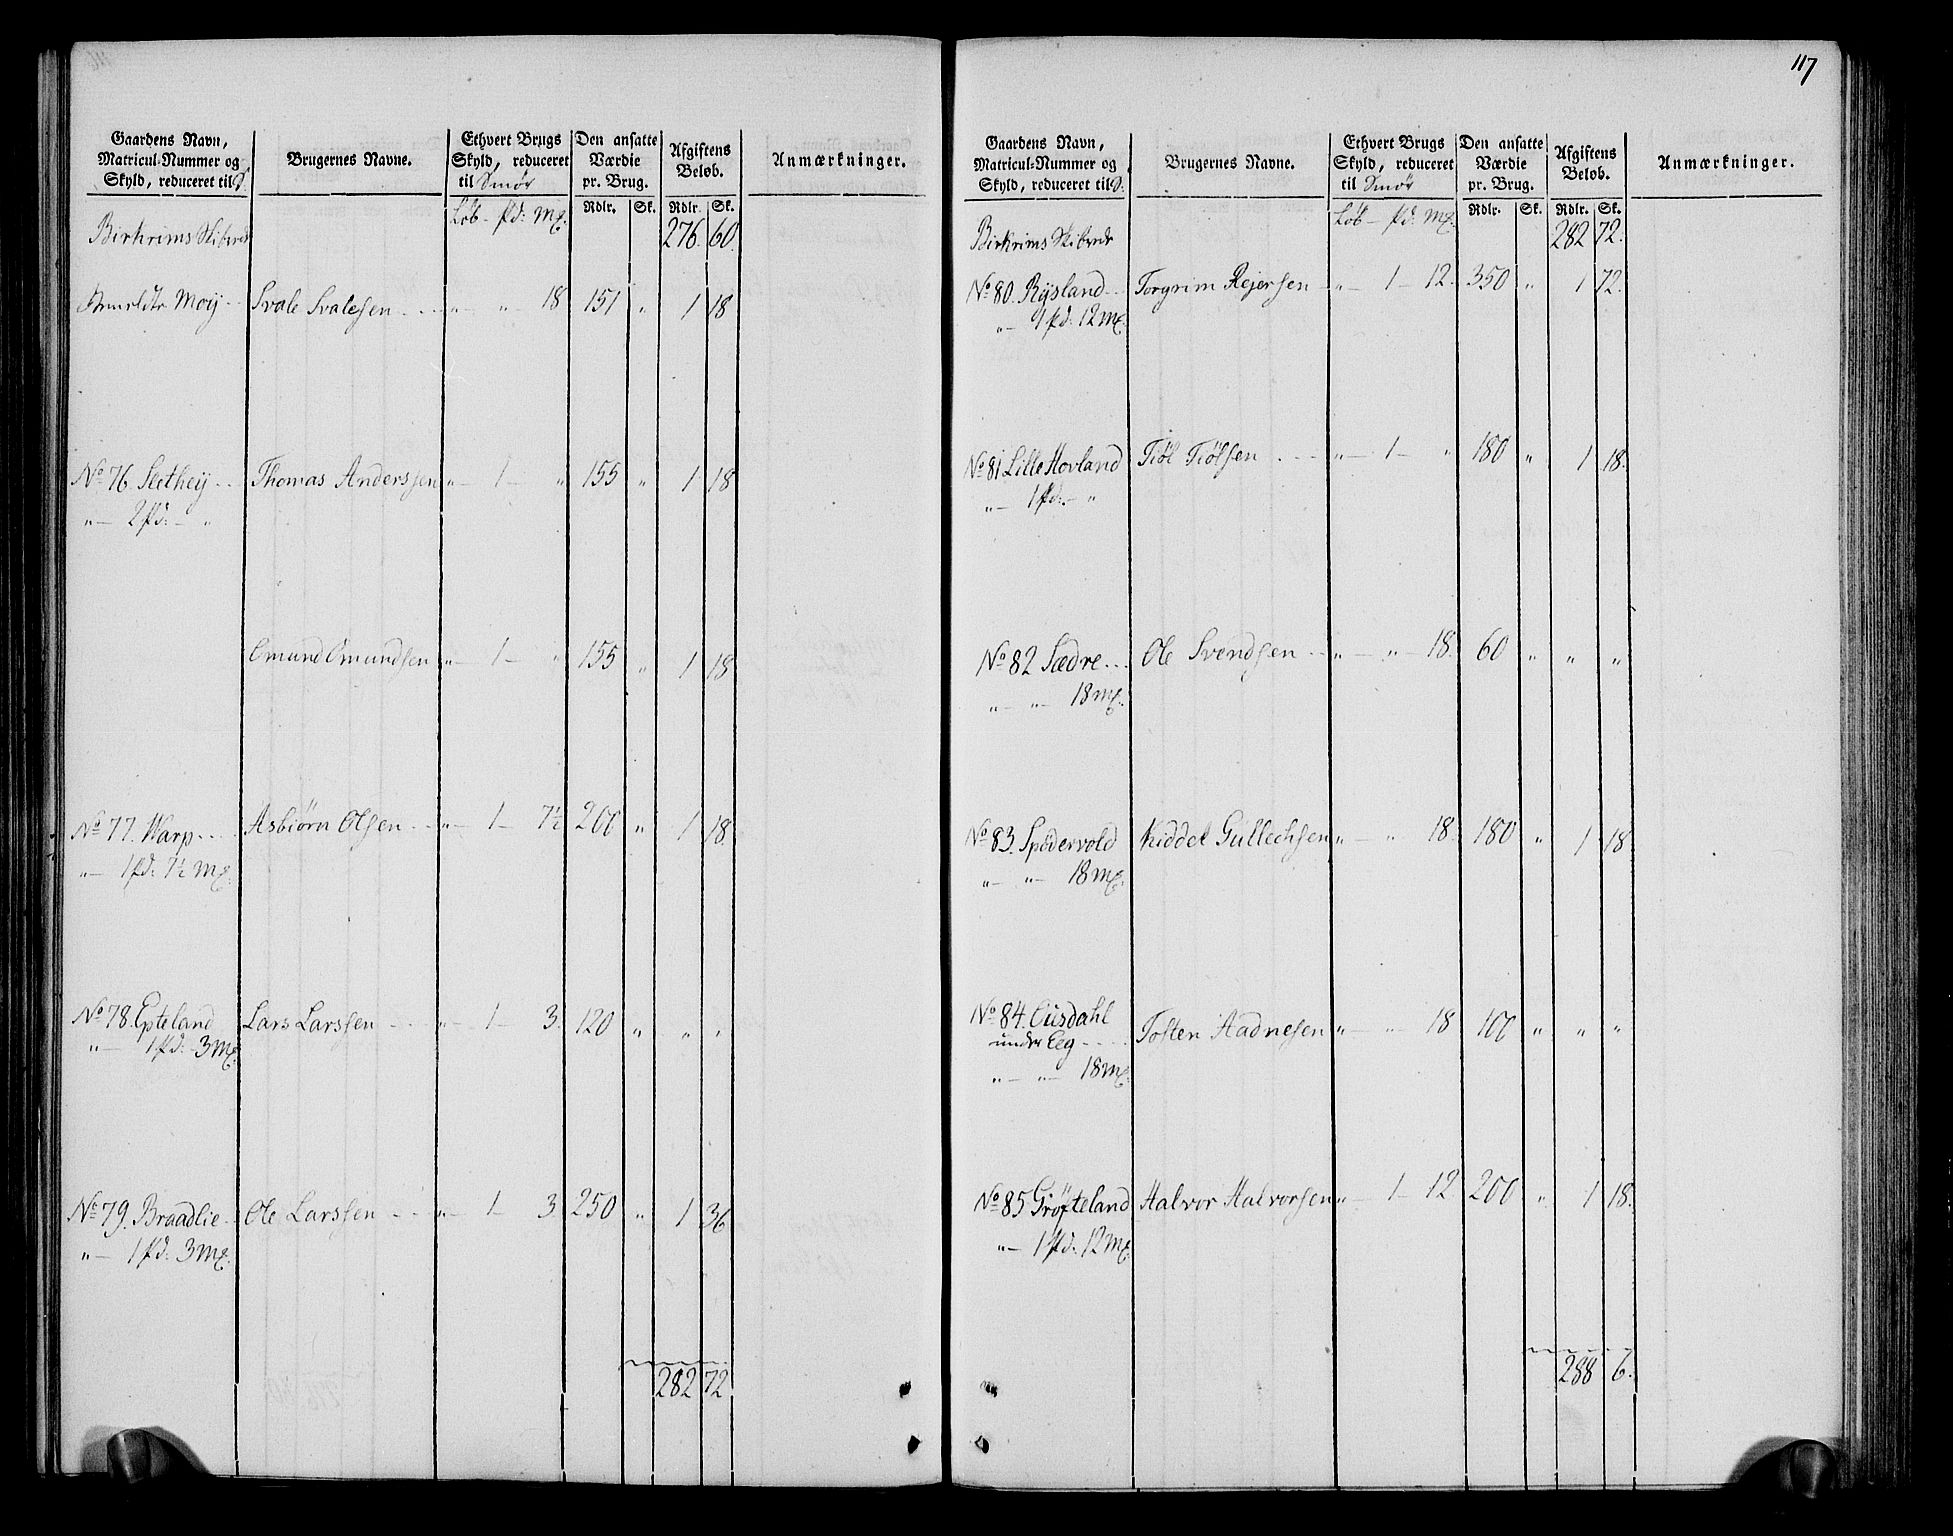 Gaardens Navn,
Matricul-Nummer og
Skyld, reduceret til S.
Brugernes Navne.
Ethvert Brugs
Skyld, reduceret
til Smør
Den ansatte
Værdie
pr. Brug.
Afgiftens
Beløb.
Anmærkninger.
Løb - Pd: Mk. Rdlr. Sk. Rdlr. Sk.
Birkrims Skibrede 276. 60.
Moij Svale Svalesen . . . „ — „ — 18 151 „ 1 18
No 76 Sletheij . . Thomas Anderssen „ — 1 — „ 155 „ 1 18
„ — 2 Pd: — „
Omund Omundsen „ — 1 — „ 155 „ 1 18
No 77. Warp . . . Asbiørn Olsen . . „ — 1 — 7½ 200 „ 1 18.
„ — 1 Pd: 7½ Mk.
No 78. Epteland Lars Larssen . . . „ — 1 — 3. 120 „ „ „
„ — 1 Pd: 3 Mk.
No 79. Braadlie . . Ole Larssen . . . „ — 1 — 3 250 „ 1 36
„ — 1 Pd: 3 Mk.
282 72
117
Gaardens Navn,
Matricul-Nummer og
Skyld, reduceret til S.
Brugernes Navne.
Ethvert Brugs
Skyld, reduceret
til Smør
Den ansatte
Værdie
pr. Brug.
Afgiftens
Beløb.
Anmærkninger.
Løb - Pd: Mk. Rdlr. Sk. Rdlr. Sk.
Birkrims Skibrede 282 72.
No 80. Rijsland . . Torgrim Rejersen „ — 1 — 12. 350 „ 1 72.
„ — 1 Pd: 12 Mk.
No 81 Lille Hovland Tiøl Tiølsen . . . „ — 1 — „ 180 „ 1 18.
„ — 1 Pd: — „
No 82 Sædre . . . Ole Svendsen . . „ — „ — 18. 60 „ „ „
„ — „ — 18 Mk.
No 83. Spødervold Kiddel Gullechsen „ — „ 18. 180 „ 1 18
„ — „ — 18 Mk.
No 84. Ousdahl
under Eeg . . . . Tosten Aadnesen „ — „ — 18 100 „ „ „
„ — „ — 18 Mk.
No 85 Grøfteland Halvor Halvorsen „ — 1 — 12 200 „ 1 18.
„ — 1 Pd: 12 Mk.
288 6.